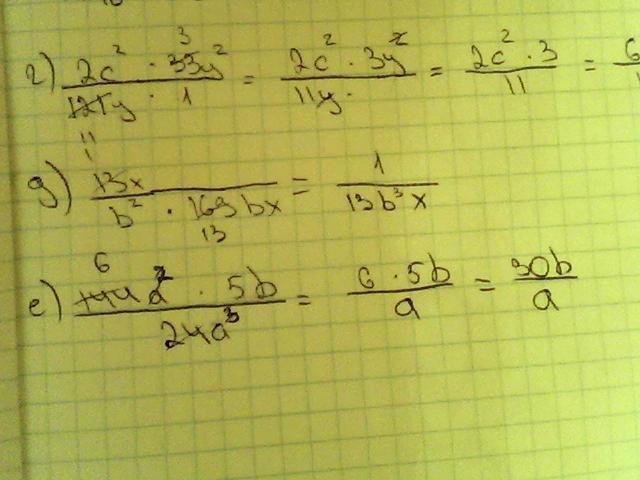 г) (2c² · 33y²)/(121y · 1) = (2c² · 3y²)/(11y ·) = (2c² · 3)/11 = 6
3
11
д) 13x/(b² · 169bx) = 1/(13b³x)
1
13
е) (144a² · 5b)/(24a³) = (6 · 5b)/a = 30b/a
6